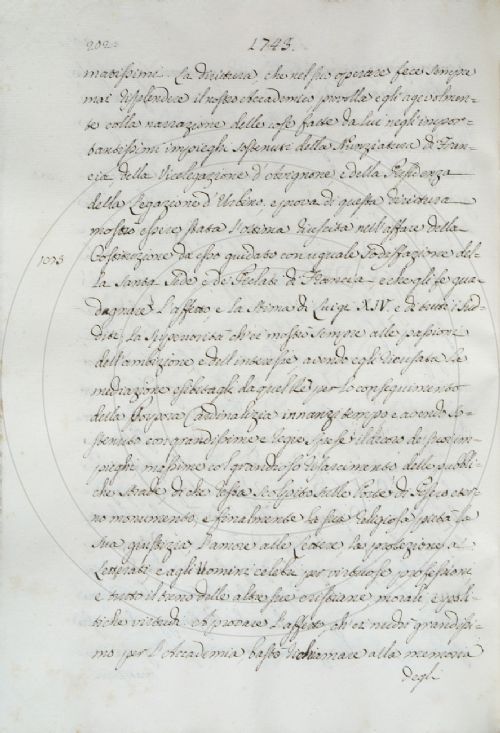 202.
1743.
matissimi. La dirittura, che nel suo operare fece sempre
mai risplendere il nostro Accademico provolla egli agevolmen-
te colla narrazione delle cose fatte da lui negli impor-
tantissimi impieghi sostenuti della Nunziatura di Fran-
cia, della Vicelegazione d'Avignone e della Presidenza
della Legazione d'Urbino, e prova di questa dirittura
mostrò essere stata l'ottima riuscita nell'affare della
Costituzione da esso guidato con uguale sodisfazione del-
1013
la Santa Sede e de' Prelati di Francia, e che gli fe gua-
dagnare l'affetto e la stima di Luigi XIV. e di tutti i Sud-
diti; la superiorità ch'ei mostrò sempre alle passioni
dell'ambizione, e dell'interesse avendo egli ricusata la
mediazione esibitagli da quel Rè per lo conseguimento
della Porpora Cardinalizia innanzi tempo e avendo so-
stenuto con grandissime e larghe spese il decoro de' suoi im-
pieghi, massime col grandioso rifacimento delle pubbli-
che strade di che resta scolpito sulle Porte di Pesaro eter-
no monumento, e finalmente la sua religiosa pietà, la
sua giustizia, l'amore alle Lettere, la protezione a'
Letterati, e agli Uomini celebri per virtuose professioni
e tutto il treno delle altre sue cristiane, morali, e poli-
tiche virtudi. A provare l'affetto ch'ei nudrì grandissi-
mo per l'Accademia bastò richiamare alla memoria
degli